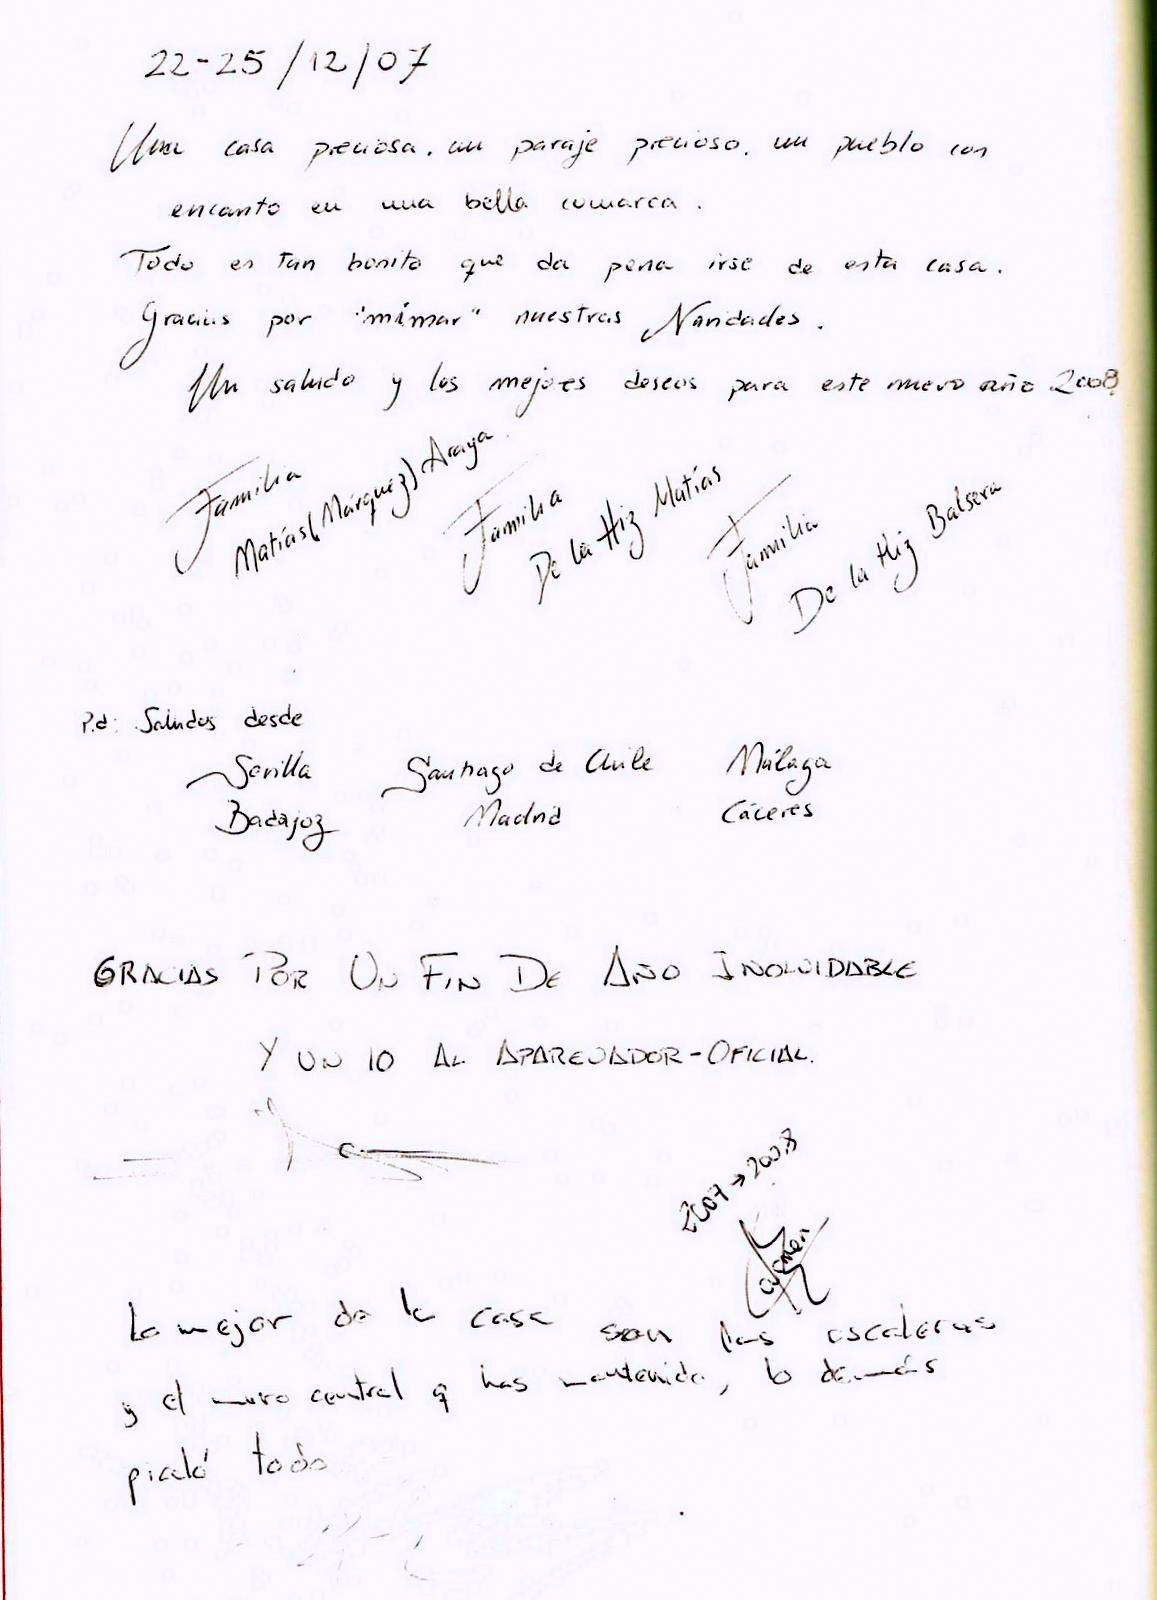 22-25/12/07
Una casa preciosa. un paraje precioso. un pueblo con
encanto en una bella comarca.
Todo es tan bonito que da pena irse de esta casa.
Gracias por "mimar" nuestras Navidades.
Un saludo y los mejores deseos para este nuevo año 2008
Familia
Matías (Márquez) Araya
Familia
De la Hiz Matías
Familia
De la Hiz Balsera
P.d: Saludos desde
Sevilla Santiago de Chile Málaga
Badajoz Madrid Cáceres
GRACIAS POR UN FIN DE AÑO INOLVIDABLE
Y UN 10 AL APAREJADOR-OFICIAL.
2007→2008
Carmen
Lo mejor de la casa son las escaleras
y el muro central q has mantenido, lo demás
todo